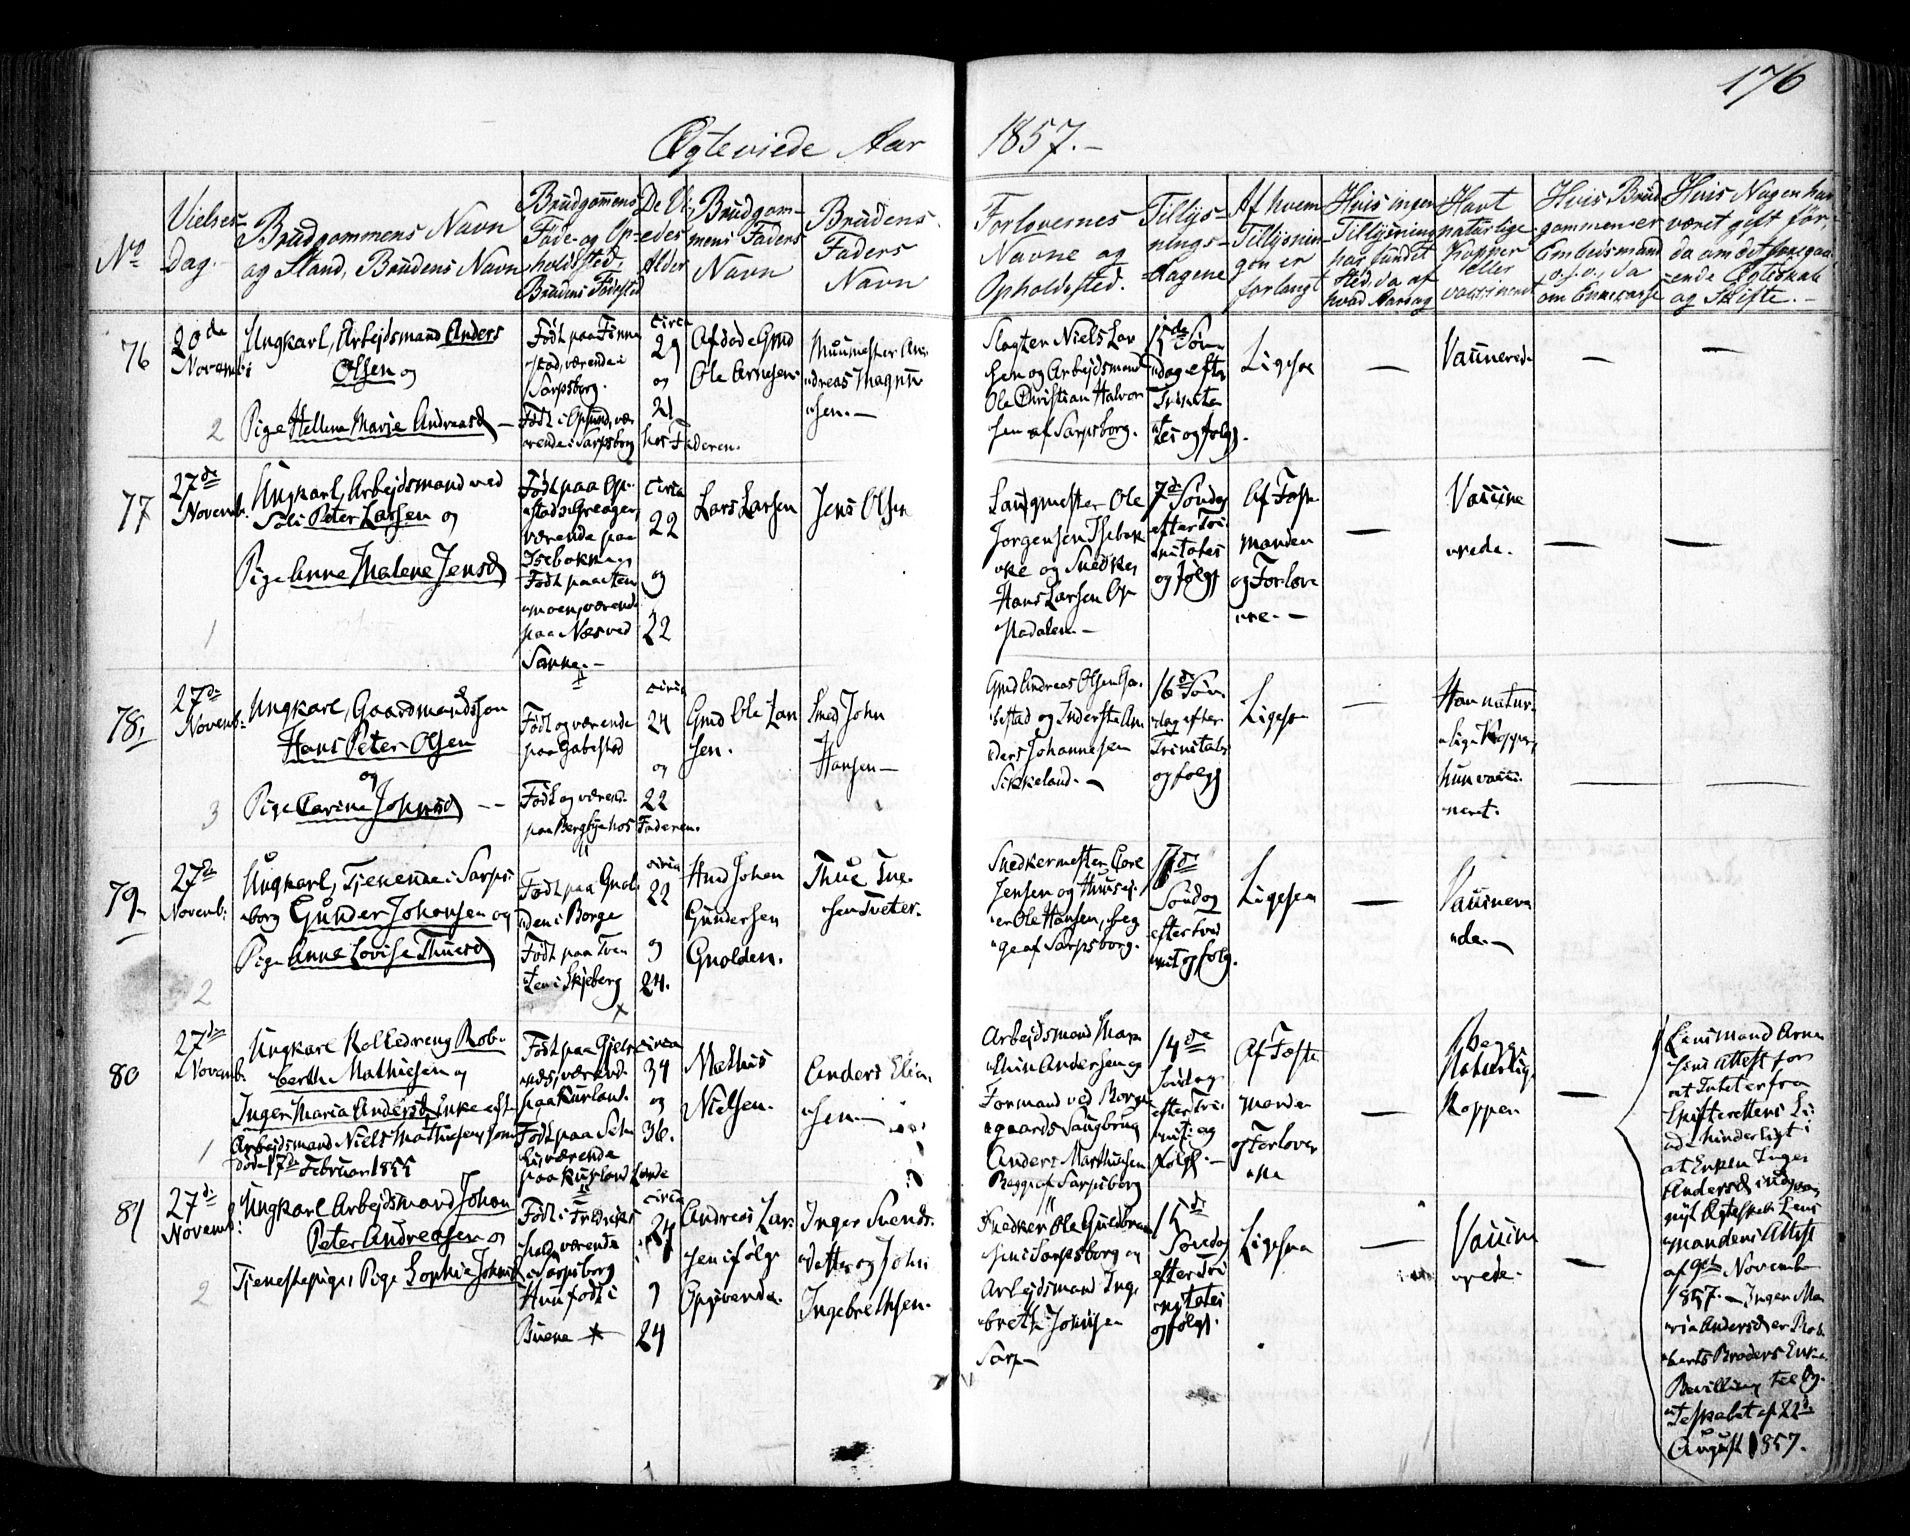 176
Ægteviede Aar 1857.-
No
Vielses-
Dag.-
Brudgommens Navn
og Stand, Brudens Navn
Brudgommens
Føde- og Op-
holdssted
Brudens Fødested
De Vi-
edes
Alder
Brudgom-
mens Faders
Navn
Brudens
Faders
Navn
Forlovernes
Navne og
Opholdssted.
Tillys-
nings-
dagene
Af hvem
Tillysnin-
gen er
forlangt
Hvis ingen
Tillysning
har fundet
Sted, da af
hvad Aarsag
Havt
naturlige
Kopper
eller
vaccineret
Hvis Brud
gommen er
Embedsmand
o.s.v., da
om Enkecasse
Hvis Nogen har
været gift før,
da om det foregaa-
ende Ægteskab
og Skifte.-
76
20de
Novemb:
2
Ungkarl, Arbejdsmand Anders
Olsen og
Pige Hellene Marie Andreasd -
Født paa Finne
stad, værende i
Sarpsborg.
Født i Opsund, væ
rende i Sarpsborg
circa
29
og
21
hos Faderen.
Afdøde Gmd
Ole Arnesen
Muurmester An
dreas Magnu
sen.-
Slagter Niels Lar
sen og Arbejdsmand
Ole Christian Halvor
sen af Sarpsborg.
15de Søn
dag efter
Trinita
tes og følg.
Ligesaa
-
Vaccinerede
-
-
77
27de
Novemb.
1
Ungkarl, Arbejdsmand ved
Peter Larsen og
Pige Anne Malene Jensd
Født paa Op
værende paa
Isebakke og
Født paa Sten
moen, værende
paa Næs ved
Sanne.-
circa
22
og
22
Lars Larsen
Jens Olsen
Ole
Jørgensen Isebak
ke og Snedker
Hans Larsen Op
stadalen.-
7de Søndag
efter Tri
nitatis
og følg
Af Fæste
manden
og Forlove
rne.-
-
Vaccine
rede.
-
-
78,
27de
Novemb:
3
Ungkarl, Gaardmandssøn
Hans Peter Olsen
og
Pige Carine Johnsd --
Født og værende
paa Gabestad
Født og værend.
paa Bergbye hos Faderen.
circa
24
og
22
Gmd Ole Lar
sen.
Smed John
Hansen-
Gmd Andreas Olsen Ga-
bestad og Inderste An
ders Johannesen
Sikkeland.-
16de Søn
dag efter
Trinitatis
og følg
Ligesaa
-
Han natur
lige Kopper,
hun vacci
neret.
-
-
79.
27de
Novemb:
2
Ungkarl, Tjenende i Sarps
borg Gunder Johansen og
Pige Anne Lovise Thuesd
Født paa Gnol
den i Borge
Født paa Tve
ten i Skjeberg
circa
22
og
24.
Hmd Johan
Gundersen
Gnolden.
Thue Tue
sen Tveter.
Snedkermester Carl
Jensen og Huusej
er Ole Hansen, beg
ge af Sarpsborg.
17de
Søndag
efter Tri
nit og følg.
Ligesaa
-
Vaccinere
de.-
80
27de
Novemb.
1
Ungkarl Kolledreng Rob-
berth Mathiesen og
Inger Maria Andersd, Enke eft.
Arbejdsmand Niels Mathiesen, som
døde 17de Februar 1855
Født paa Gjels
værende
paa Kurland.
Født paa
værende
paa Kurland
circa
34
og
36.
Mathis
Nielsen.
Anders Elia
sen.-
Arbejdsmand Mar
thin Andersen og
Formand ved Borge
gaards Saugbrug
Anders Marthinsen
Begge af Sarpsborg
14de
Søndag
efter Tri
nit: og
følg.-
Af Fæste
manden
og Forlover
ne
-
Begge
Naturlige
Kopper
-
Lensmand Arne
sens Attest for
at Intet er fra
Skifterettens Si
de hinderligt i
at Enken Inger
Andersd indgaar
nyt Ægteskab Lens
mandens Attest
af 9de November
1857.- Inger Ma
ria Andersd er Rob
berts Broders Enke.
Bevilling til Æg-
teskabet af 22de
August 1857.
81
27de
Novemb:
2
Ungkarl Arbejdsmand Johan
Peter Andreasen og
Tjenestepige, Pige Sophie Johnsd
Født i Fredriks
hald værende
i Sarpsborg
Hun født i
Buene
circa
24
og
24
Andreas Lar-
sen ifølge
Opgivende.
Inger Svends
datter og John
Ingebrethsen.
Snedker Ole Gulbran
sen i Sarpsborg og
Arbejdsmand Inge
breth Johnsen
Sarp-
15de
Søndag
efter Tri
nitatis
og følg.
Ligesaa
-
Vaccine
rede.
-